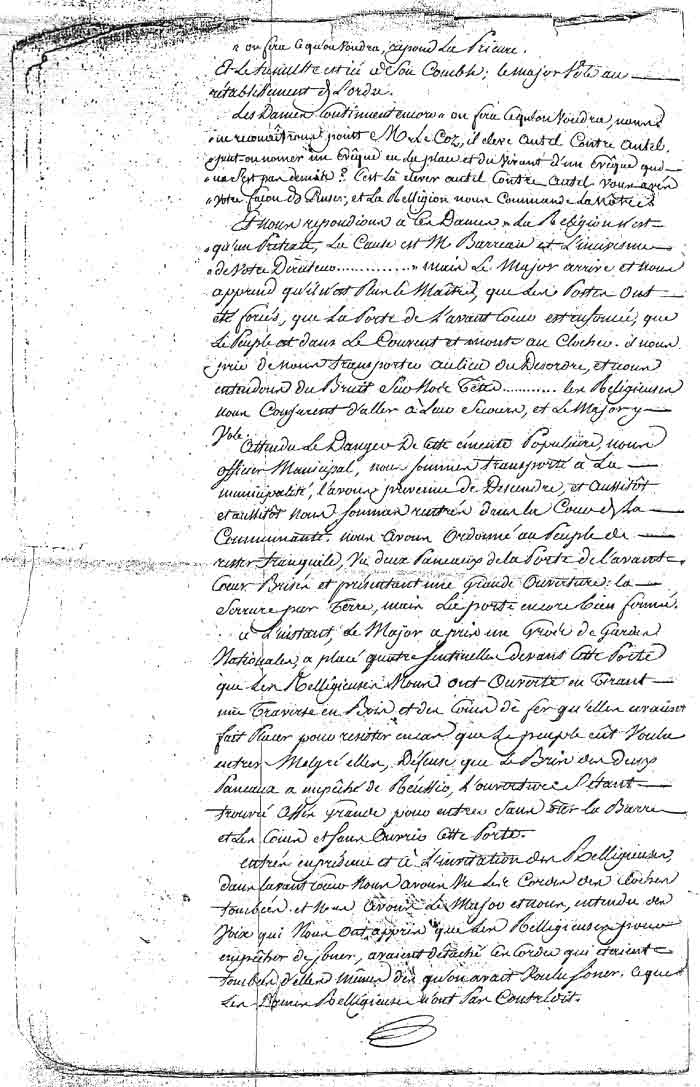 « on fera ce qu'on voudra, répond La Prieure.
Et Le tumulte est ici à Son Comble; le major vole au
rétablissement de L'ordre.
Les Dames Continuent encore « on fera ce qu'on voudra, nous
« ne reconnaîtrons point M. Le Coz, il eleve autel Contre autel.
« peut-on nomer un Evêque en La place et du vivant d'un Evêque qui
« n'a C'est pas demis ? C'est là elever autel Contre autel. vous avez
« votre façon de Penser; et La Relligion nous Commande La Nôtre.
Et nous repondions à Ces Dames « La Religion n'est
« qu'un Prétexte, La Cause est M. Barreau et L'incivisme
« de Votre Directeur............. » mais Le Major arrive et nous
apprend qu'il n'est Plus Le Maître, que Les Postes ont
été forcés, que La Porte de L'avant Cour est enfoncée; que
Le Peuple est dans Le Couvent et monte au Clocher. il nous
prie de nous transporter au lieu du Desordre, et nous
entendons du Bruit Sur Notre Tête............ les Religieuses
nous Conjurent d'aller à Leur Secours, et Le Major y
Vole.
Attendu Le Danger De cette émeute Populaire, nous
officier Municipal, nous sommes transporté à La
municipalité, l'avons prevenue de Descendre, et aussitôt
et aussitôt nous sommes rentrés dans la Cour de La
Communauté. nous avons Ordonné au Peuple de
rester tranquile, Vu deux Panneaux de la Porte de l'avant
Cour Brisés et présentant une Grande Ouverture: la
Serrure par Terre, mais La porte encore bien fermée.
à L'instant, Le Major a pris un Grouppe de Gardes
Nationales, a placé quatre Sentinelles devant Cette Porte
que Les Relligieuses Nous ont Ouverte en Tirant
une Traverse en Bois et des Coins de fer qu'elles avaient
fait Placer pour resister en cas que Le peuple eût Voulu
entrer Malgré elles, Défense que Le Bris des deux
Panneaux a empêché de Réussir, L'ouverture S'étant
trouvée assez grande pour entrer Sans ôter la Barre
et Les Coins et Sans Ouvrir Cette Porte.
entrés en présence et à L'invitation des Relligieuses
dans lavant Cour Nous avons Vu Les Cordes des cloches
tombées. et Nous avons Le Major et nous, entendu des
Voix qui Nous Ont appris que Les Relligieuses pour
empêcher de Sonner, avaient détaché Les Cordes qui etaient
tombées d'elles mêmes dès qu'on avait Voulu Soner. ce que
Les Dames Relligieuses n'ont Pas Contredit.